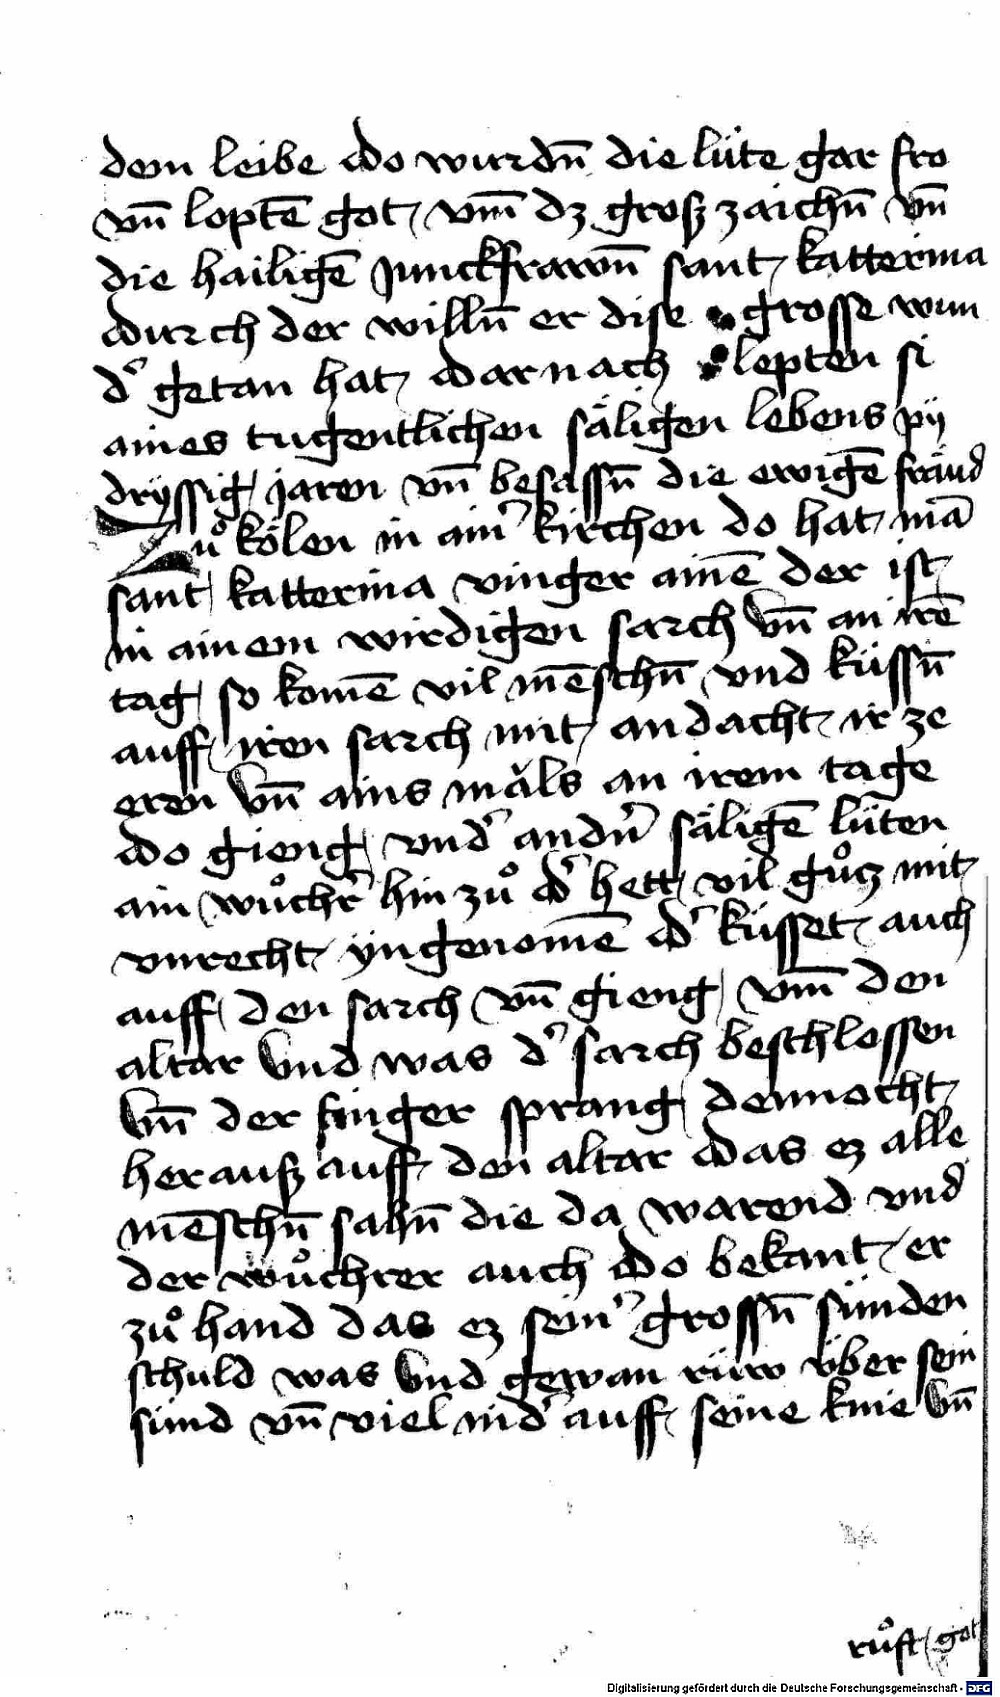 dem leibe do wurdn̄ die lüte gar fro
vn̄ loptē got vm̄ dz groß zaichn̄ vn̄
die hailigē junckfrawn̄ sant katterina
durch der willn̄ er dise grosse wun
d' getan hat dar nach lepten si
aines tugentlichen säligen lebens pij
dryssig jaren vn̄ besassn̄ die ewigē fräud
Zuͦ kölen in ain' kirchen do hat mā
sant katterina vinger ainē der ist
in ainem wirdigen sarch vn̄ an irē
tag so komē vil mēschn̄ vnd küssn̄
auff iren sarch mit andacht ir ze
eren vn̄ ains mǎls an irem tage
do gieng vnd' andn̄' säligē lüten
ain wuͦchr' hin zuͦ d' hett vil guͦcz mit
vnrecht yngenomē d' küsset auch
auff den sarch vn̄ gieng vm̄ den
altar vnd was d' sarch beschlossen
vn̄ der finger sprang dennocht
herauß auff den altar das ez alle
mēschn̄ sahn̄ die da warend vnd
der wuͦchrer auch do bekant er
zuͦ hand das ez sein' grossn̄ sünden
schuld was vnd gewan rüw über sein
sünd vn̄ viel nid' auff seine knie vn̄
ruͦft got
Digitalisierung gefördert durch die Deutsche Forschungsgemeinschaft - DFG